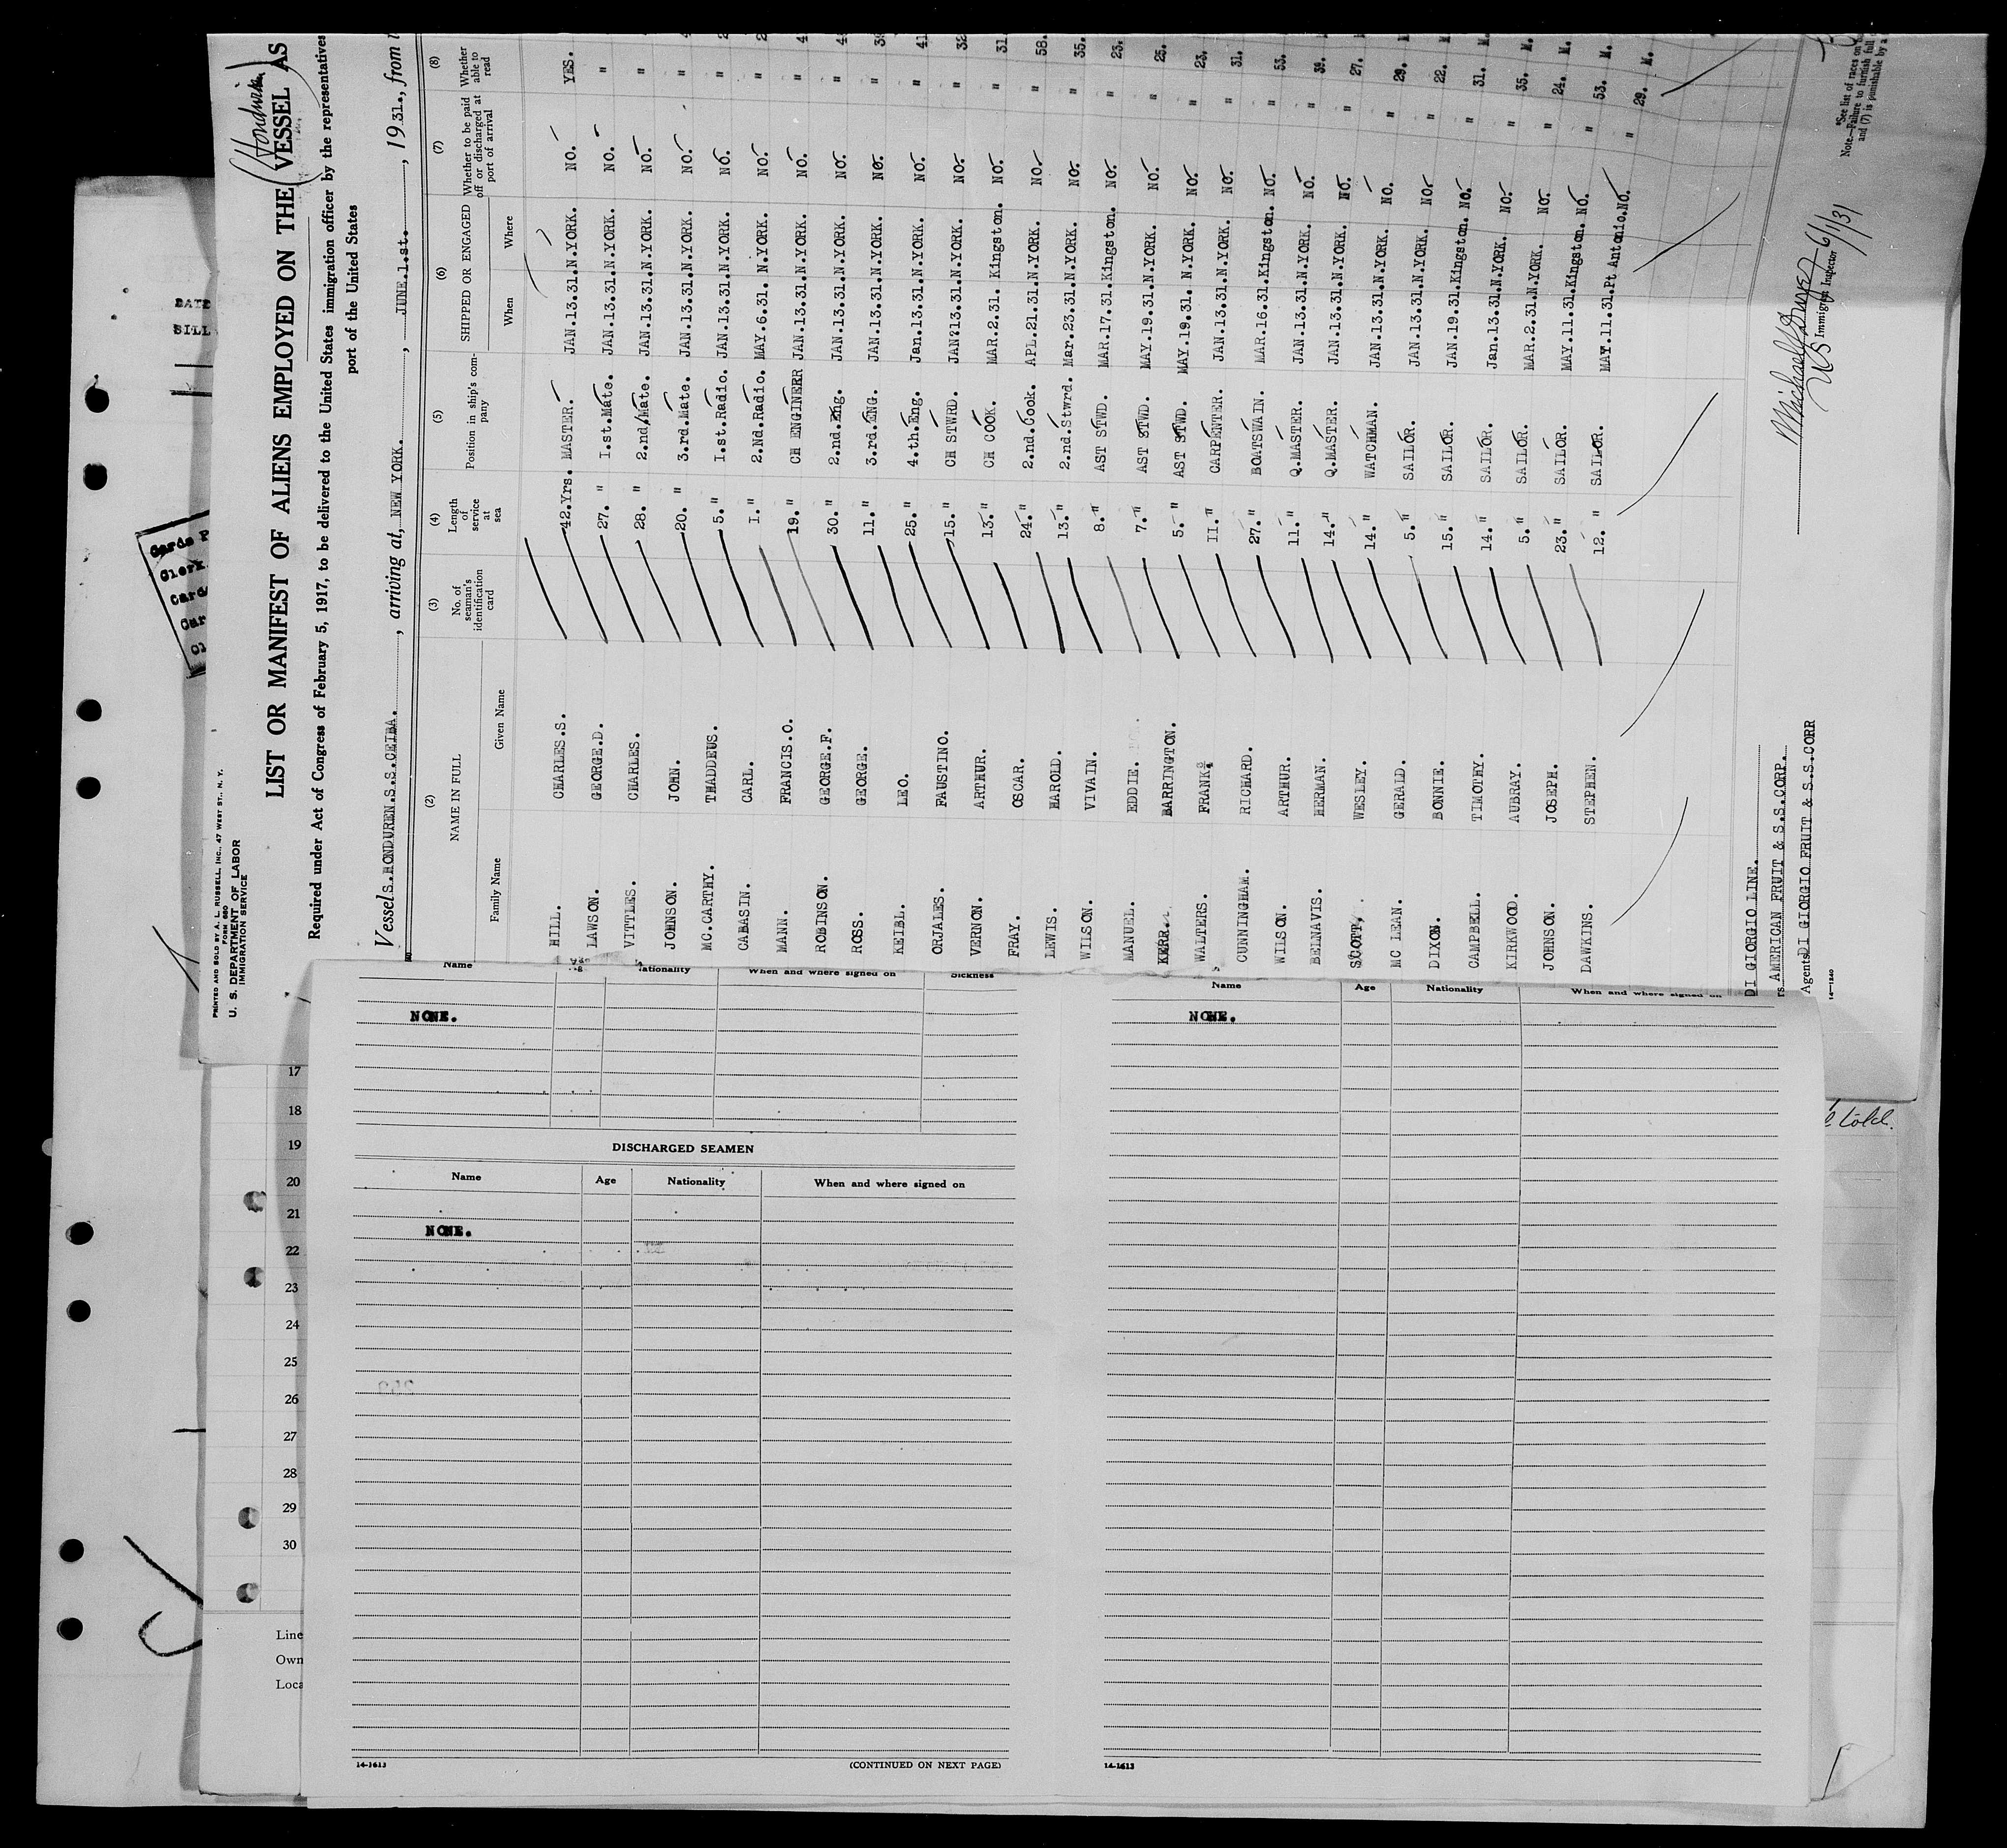 PRINTED AND SOLD BY A. L. RUSSELL, INC., 47 WEST ST., N. Y.
FORM 680
U. S. DEPARTMENT OF LABOR
IMMIGRATION SERVICE
(Honduran)
LIST OR MANIFEST OF ALIENS EMPLOYED ON THE VESSEL AS
Required under Act of Congress of February 5, 1917, to be delivered to the United States immigration officer by the representatives
port of the United States
Vessel S.HONDUREN.S.S.CEIBA. , arriving at, NEW YORK. , JUNE.1.st. , 19 31., from
(2) (3) (4) (5) (6) (7) (8)
NAME IN FULL No. of seaman's identification card Length of service at sea Position in ship's company SHIPPED OR ENGAGED Whether to be paid off or discharged at port of arrival Whether able to read
Family Name Given Name When Where
HILL. CHARLES.S. 42.Yrs. MASTER. JAN.13.31.N.YORK. NO. YES.
LAWSON. GEORGE.D. 27. " I.st.Mate. JAN.13.31.N.YORK. NO. "
VITTLES. CHARLES. 28. " 2.nd.Mate. JAN.13.31.N.YORK. NO. "
JOHNSON. JOHN. 20. " 3.rd.Mate. JAN.13.31.N.YORK. NO. "
MC.CARTHY. THADDEUS. 5. " I.st.Radio. JAN.13.31.N.YORK. NO. "
CABASIN. CARL. I. " 2.Nd.Radio. MAY.6.31. N.YORK. NO. "
MANN. FRANCIS.O. 19. " CH ENGINEER JAN.13.31.N.YORK. NO. "
ROBINSON. GEORGE.F. 30. " 2.nd.Eng. JAN.13.31.N.YORK. NO. "
ROSS. GEORGE. 11. " 3.rd.ENG. JAN.13.31.N.YORK. NO. "
KEIBL. LEO. 25. " 4.th.Eng. Jan.13.31.N.YORK. NO. " 41
ORJALES. FAUSTINO. 15. " CH STWRD. JAN?13.31.N.YORK. NO. " 32
VERNON. ARTHUR. 13. " CH COOK. MAR.2.31. Kingston. NO. " 31
FRAY. OSCAR. 24. " 2.nd.Cook. APL.21.31.N.YORK. NO. " 58.
LEWIS. HAROLD. 13. " 2.nd.Stwrd. Mar.23.31.N.YORK. NO. " 35.
WILSON. VIVAIN. 8. " AST STWD. MAR.17.31.Kingston. NO. " 23.
MANUEL. EDDIE. 7. " AST STWD. MAY.19.31.N.YORK. NO. " 25.
KERR. BARRINGTON. 5. " AST STWD. MAY.19.31. N.YORK. NO. " 23.
WALTERS. FRANK 11. " CARPENTER. JAN.13.31.N.YORK. NO. " 31.
CUNNINGHAM. RICHARD. 27. " BOATSWAIN. MAR.16.31.Kingston. NO. " 53.
WILSON. ARTHUR. 11. " Q.MASTER. JAN.13.31.N.YORK. NO. " 39.
BELNAVIS. HERMAN. 14. " Q.MASTER. JAN.13.31.N.YORK. NO. " 27.
SCOTT. WESLEY. 14. " WATCHMAN. JAN.13.31.N.YORK. NO. " 29. M
MC LEAN. GERALD. 5. " SAILOR. JAN.13.31.N.YORK. NO. " 22. M
DIXON. BONNIE. 15. " SAILOR. JAN.19.31.Kingston. NO. " 31. M.
CAMPBELL. TIMOTHY. 14. " SAILOR. Jan.13.31.N.YORK. NO. " 35. M.
KIRKWOOD. AUBRAY. 5. " SAILOR. MAR.2.31.N.YORK. NO. " 24. M.
JOHNSON. JOSEPH. 23. " SAILOR. MAY.11.31.Kingston. NO. " 53. M.
DAWKINS. STEPHEN. 12. " SAILOR. MAY.11.31.Pt Antonio.NO. " 29. M.
DI GIORGIO LINE.
rs AMERICAN FRUIT & S.S.CORP.
Agents DI GIORGIO FRUIT & S.S.CORR
14-1240
US Immigrant Inspector 6/1/31
*See list of races on
Note.—Failure to furnish full
and (7) is punishable by a
DATE
BILL
Cards
Clerk
Card
Car
Name Nationality When and where signed on Sickness
NONE.
DISCHARGED SEAMEN
Name Age Nationality When and where signed on
NONE.
14-1613
(CONTINUED ON NEXT PAGE)
Name Age Nationality When and where signed on
NONE.
14-1613
17
18
19
20
21
22
23
24
25
26
27
28
29
30
Line
Own
Loca
told.